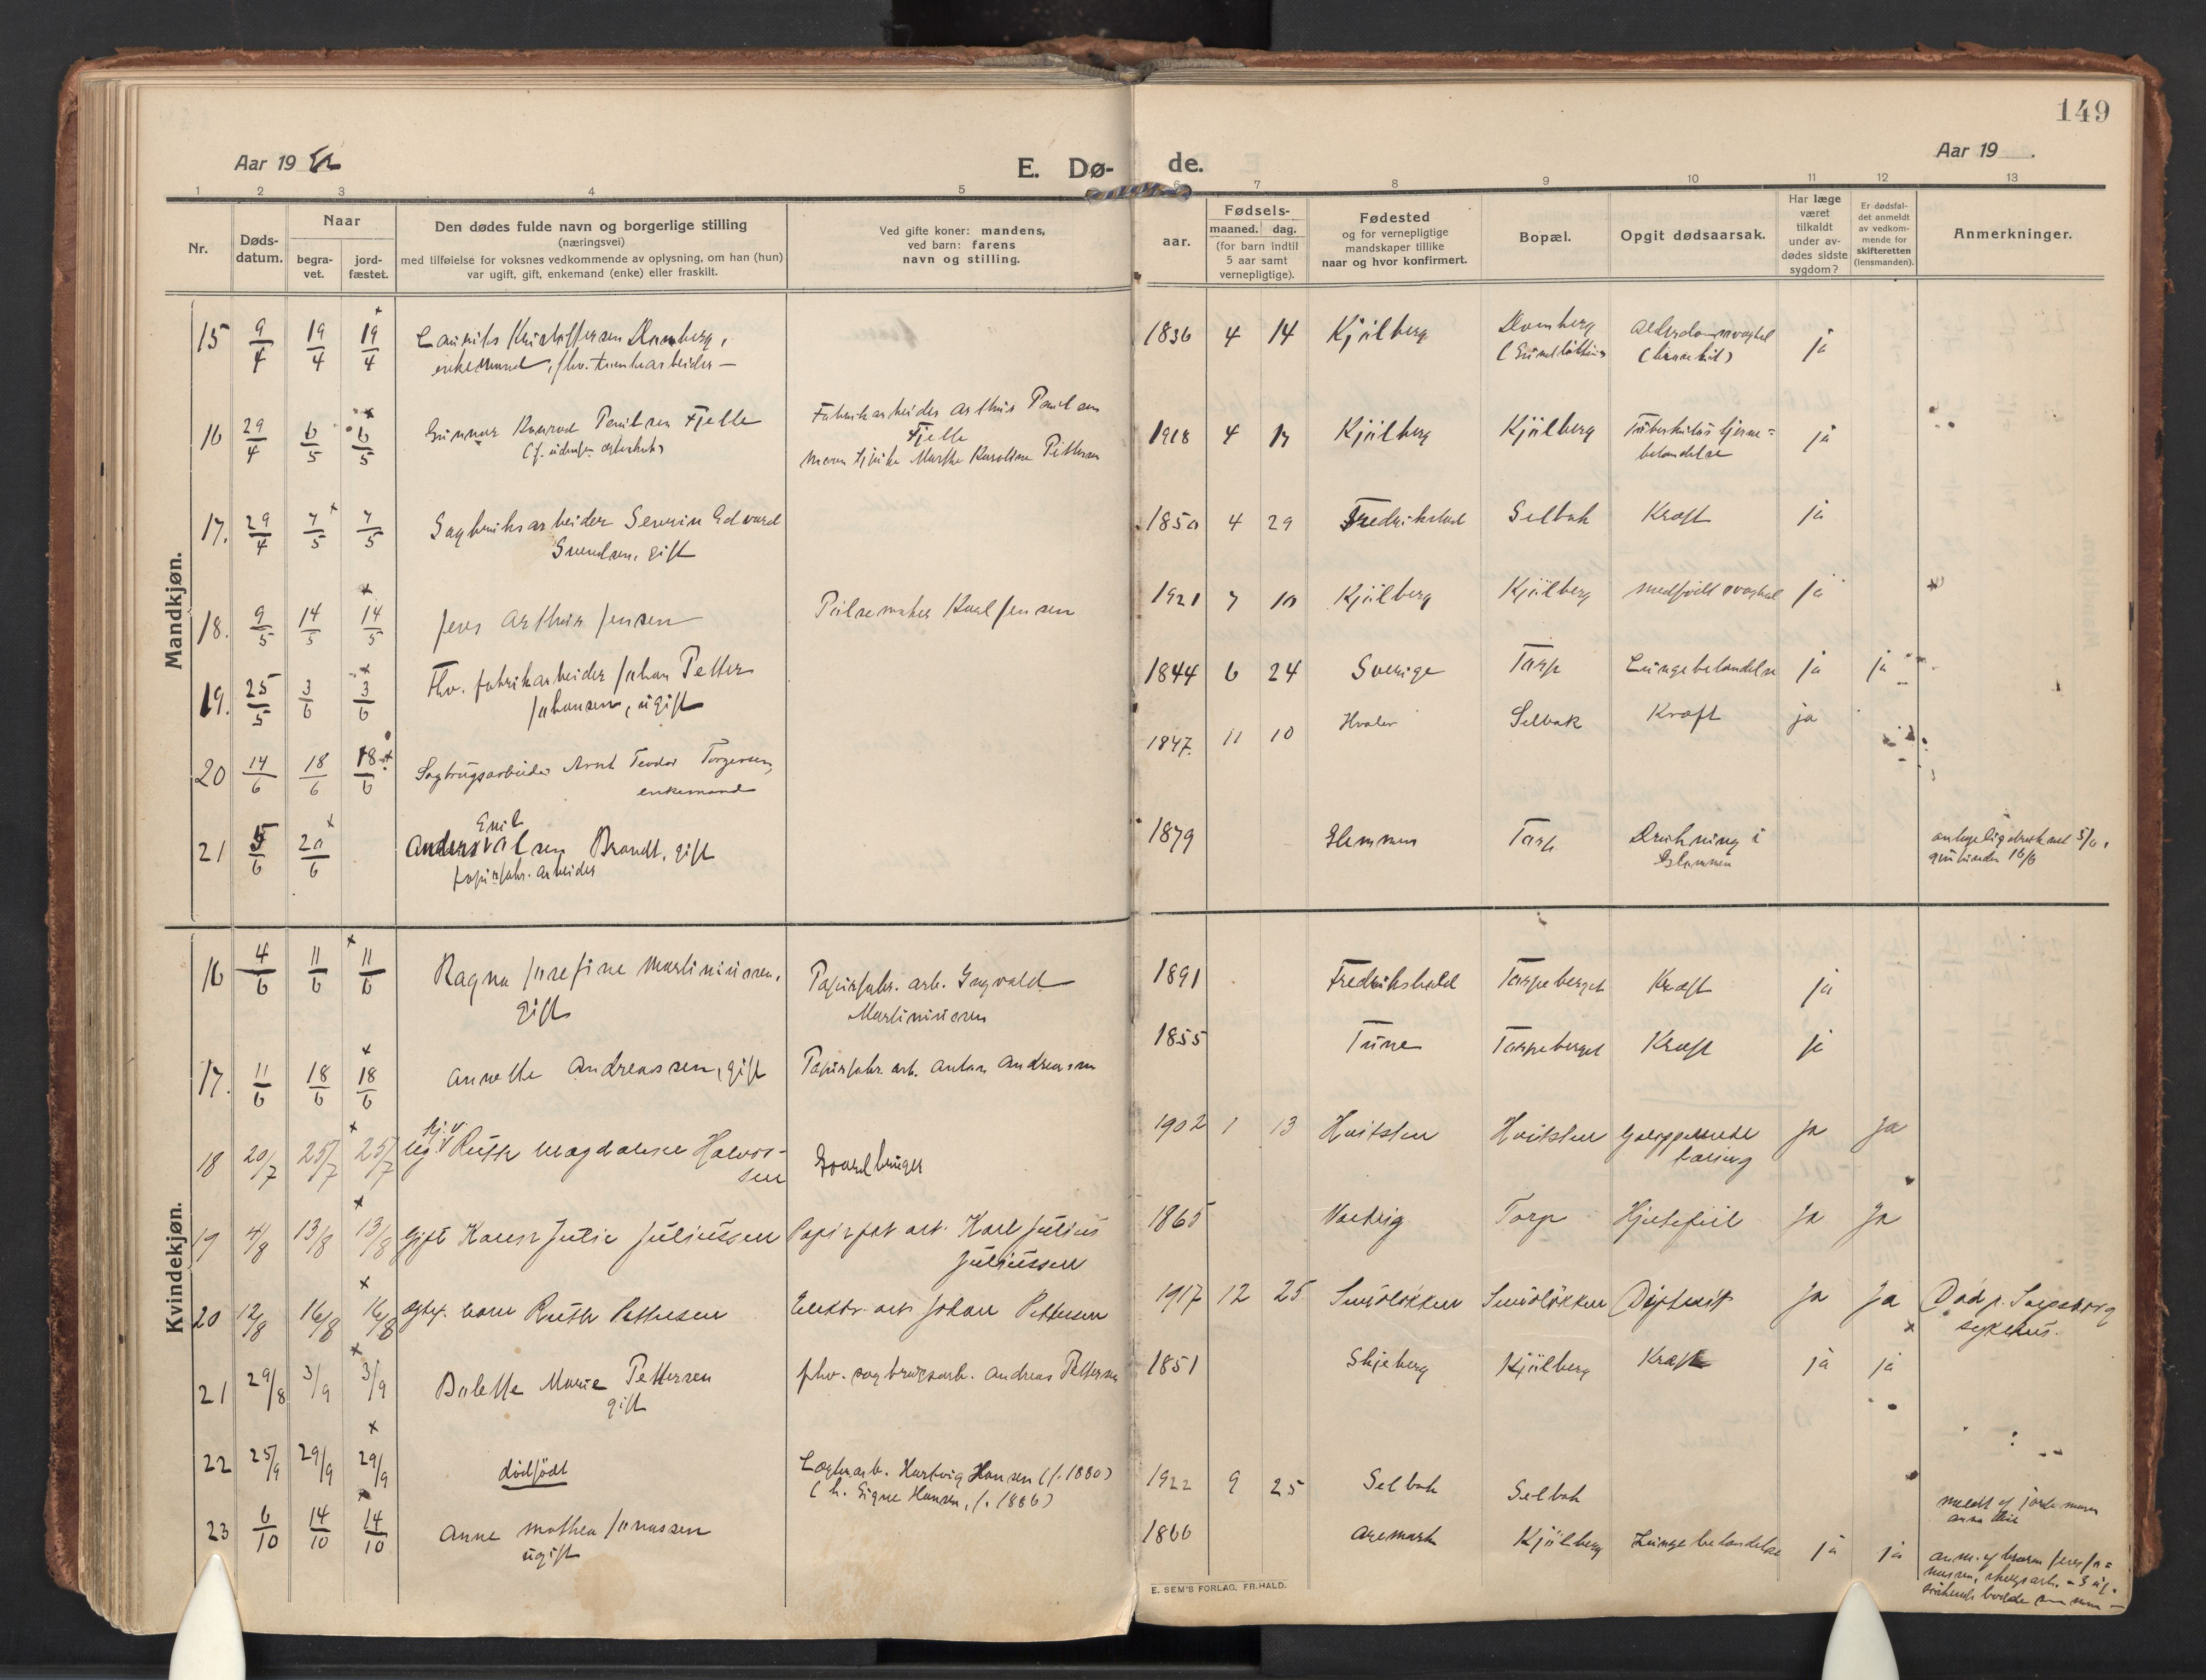 149
Aar 19 22
E. Dø-
de.
Aar 19 .
1 2 3 4 5 6 7 8 9 10 11 12 13
Nr.
Døds-
datum.
Naar
begra-
vet.
jord-
fæstet.
Den dødes fulde navn og borgerlige stilling
(næringsvei)
med tilføielse for voksnes vedkommende av oplysning, om han (hun)
var ugift, gift, enkemand (enke) eller fraskilt.
Ved gifte koner: mandens,
ved barn: farens
navn og stilling.
aar.
Fødsels-
maaned. dag.
(for barn indtil
5 aar samt
vernepligtige).
Fødested
og for vernepligtige
mandskaper tillike
naar og hvor konfirmert.
Bopæl.
Opgit dødsaarsak.
Har læge
været
tilkaldt
under av-
dødes sidste
sygdom?
Er dødsfal-
det anmeldt
av vedkom-
mende for
skifteretten
(lensmanden).
Anmerkninger.
Mandkjøn.
15 9/4 19/4 19/4 Kristoffersen
enkemand, fhv.
1836 4 14 Kjølberg
ja
16 29/4 6/5 6/5 Gunnar Konrad Paulsen Fjelle
Fabrikarbeider Arthur Paulsen
Fjelle
Marthe Karoline Pettersen
1918 4 17 Kjølberg Kjølberg Tuberkuløs hjerne=
betændelse
ja
17. 29/4 7/5 7/5 Sagbruksarbeider Severin Edvard
Svendsen, gift
1850 4 29 Fredrikstad Selbak Kræft ja
18. 9/5 14/5 14/5 Jens Arthur Jensen
Pølsemaker Karl Jensen
1921 7 10 Kjølberg Kjølberg medfødt svaghet ja
19. 25/5 3/6 3/6 Fhv. fabrikarbeider Johan Petter
Johansen, ugift
1844 6 24 Sverige Torp Lungebetændelse ja ja
20 14/6 18/6 18/6 Sagbrugsarbeider Arnt Teodor Torgersen,
enkemand
1847. 11 10 Hvaler Selbak Kræft ja
21 5/6 20/6 Emil
Anders Olsen Brandt, gift
papirfabr. arbeider
1879 Glemmen Torp Drukning i
Glommen
antagelig druknet 5/6,
gjenfunden 16/6
Kvindekjøn.
16 4/6 11/6 11/6 Ragna Josefine Martiniussen,
gift
Papirfabr. arb. Ingvald
Martiniussen
1891 Fredrikshald Torpeberget Kræft ja
17. 11/6 18/6 18/6 Annette Andreassen, gift
Papirfabr. arb. Anton Andreassen
1855 Tune Torpeberget Kræft ja
18 20/7 25/7 25/7 Ruth Magdalene Halvor-
sen
Gaardbruger
1902 1 13 Hvitsten Hvitsten Galopperende
tæring
ja ja
19 4/8 13/8 13/8 Gift Karen Julie Juliussen
Papirfab arb. Karl Julius
Juliussen
1865 Torp Hjertefeil Ja Ja
20 12/8 16/8 16/8 barn Ruth Pettersen
Elektr. arb Johan Pettersen
1917 12 25 Difterit Ja Ja Død p. Sarpsborg
sykehus.
21 29/8 3/9 3/9 Dalette Marie Pettersen
gift
fhv. sagbrugsarb. Andreas Pettersen
1851 Skjeberg Kjølberg Kræft ja ja
22 25/9 29/9 29/9 dødfødt
Hartvig Hansen (f. 1880)
(h. Signe Hansen, f. 1886)
1922 9 25 Selbak Selbak
meldt af jordemoren
23 6/10 14/10 14/10 Anne Mathea Jonassen
ugift
1866 Aremark Kjølberg Lungebetændelse ja ja
anm. af broren Jens Jo=
nassen,
E. SEM'S FORLAG, FR.HALD.